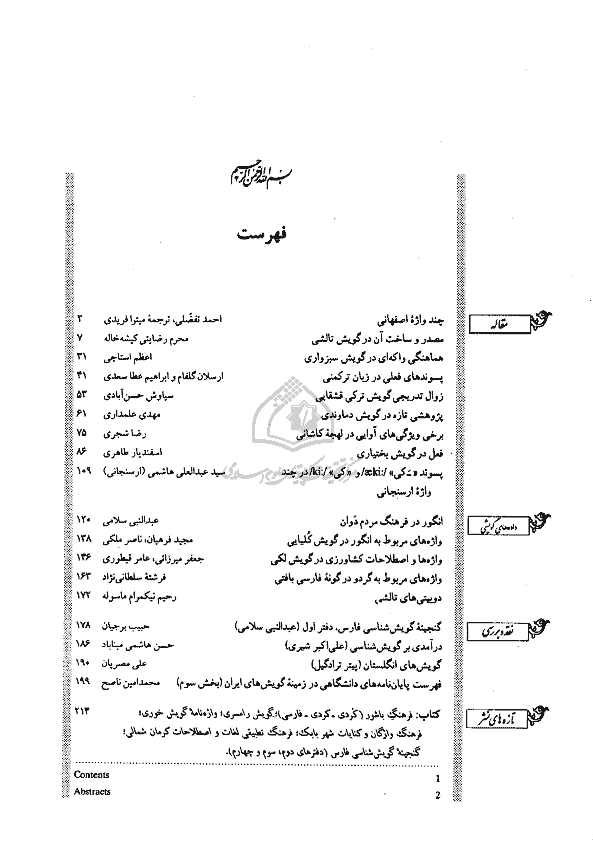 بسم الله الرحمن الرحیم
فهرست
مقاله
چند واژهٔ اصفهانی احمد تفضّلی، ترجمهٔ میترا فریدی ۲
مصدر و ساخت آن در گویش تالشی محرم رضایتی کیشه‌خاله ۷
هماهنگی واکه‌ای در گویش سبزواری اعظم استاجی ۳۱
پسوندهای فعلی در زبان ترکمنی ارسلان گلفام و ابراهیم عطا سعدی ۴۱
زوال تدریجی گویش ترکی قشقایی سیاوش حسن‌آبادی ۵۳
پژوهشی تازه در گویش دماوندی مهدی علمداری ۶۱
برخی ویژگی‌های آوایی در لهجهٔ کاشانی رضا شجری ۷۵
فعل در گویش بختیاری اسفندیار طاهری ۸۶
پسوند «ـَ‌کی» /æki:/ و «کی» /ki:/ در چند سید عبدالعلی هاشمی (ارسنجانی) ۱۰۹
واژهٔ ارسنجانی
داده‌های گویشی
انگور در فرهنگ مردم دَوان عبدالنبی سلامی ۱۲۰
واژه‌های مربوط به انگور در گویش کُلیایی مجید فرهیان، ناصر ملکی ۱۳۸
واژه‌ها و اصطلاحات کشاورزی در گویش لکی جعفر میرزائی، عامر قیطوری ۱۴۶
واژه‌های مربوط به گردو در گونهٔ فارسی بافتی فرشتهٔ سلطانی‌نژاد ۱۶۳
دوبیتی‌های تالشی رحیم نیکمرام ماسوله ۱۷۲
نقد و بررسی
گنجینهٔ گویش‌شناسی فارس، دفتر اول (عبدالنبی سلامی) حبیب برجیان ۱۷۸
درآمدی بر گویش‌شناسی (علی‌اکبر شیری) حسن هاشمی میناباد ۱۸۶
گویش‌های انگلستان (پیتر ترادگیل) علی مصریان ۱۹۰
فهرست پایان‌نامه‌های دانشگاهی در زمینهٔ گویش‌های ایران (بخش سوم) محمدامین ناصح ۱۹۹
تازه‌های نشر
کتاب: فرهنگ باشور (کُردی ـ کردی ـ فارسی)؛ گویش رامسری؛ واژه‌نامهٔ گویش خوری؛ ۲۱۴
فرهنگ واژگان و کنایات شهر بابک؛ فرهنگ تطبیقی لغات و اصطلاحات کرمان شمالی؛
گنجینهٔ گویش‌شناسی فارس (دفترهای دوم، سوم و چهارم).
Contents 1
Abstracts 2